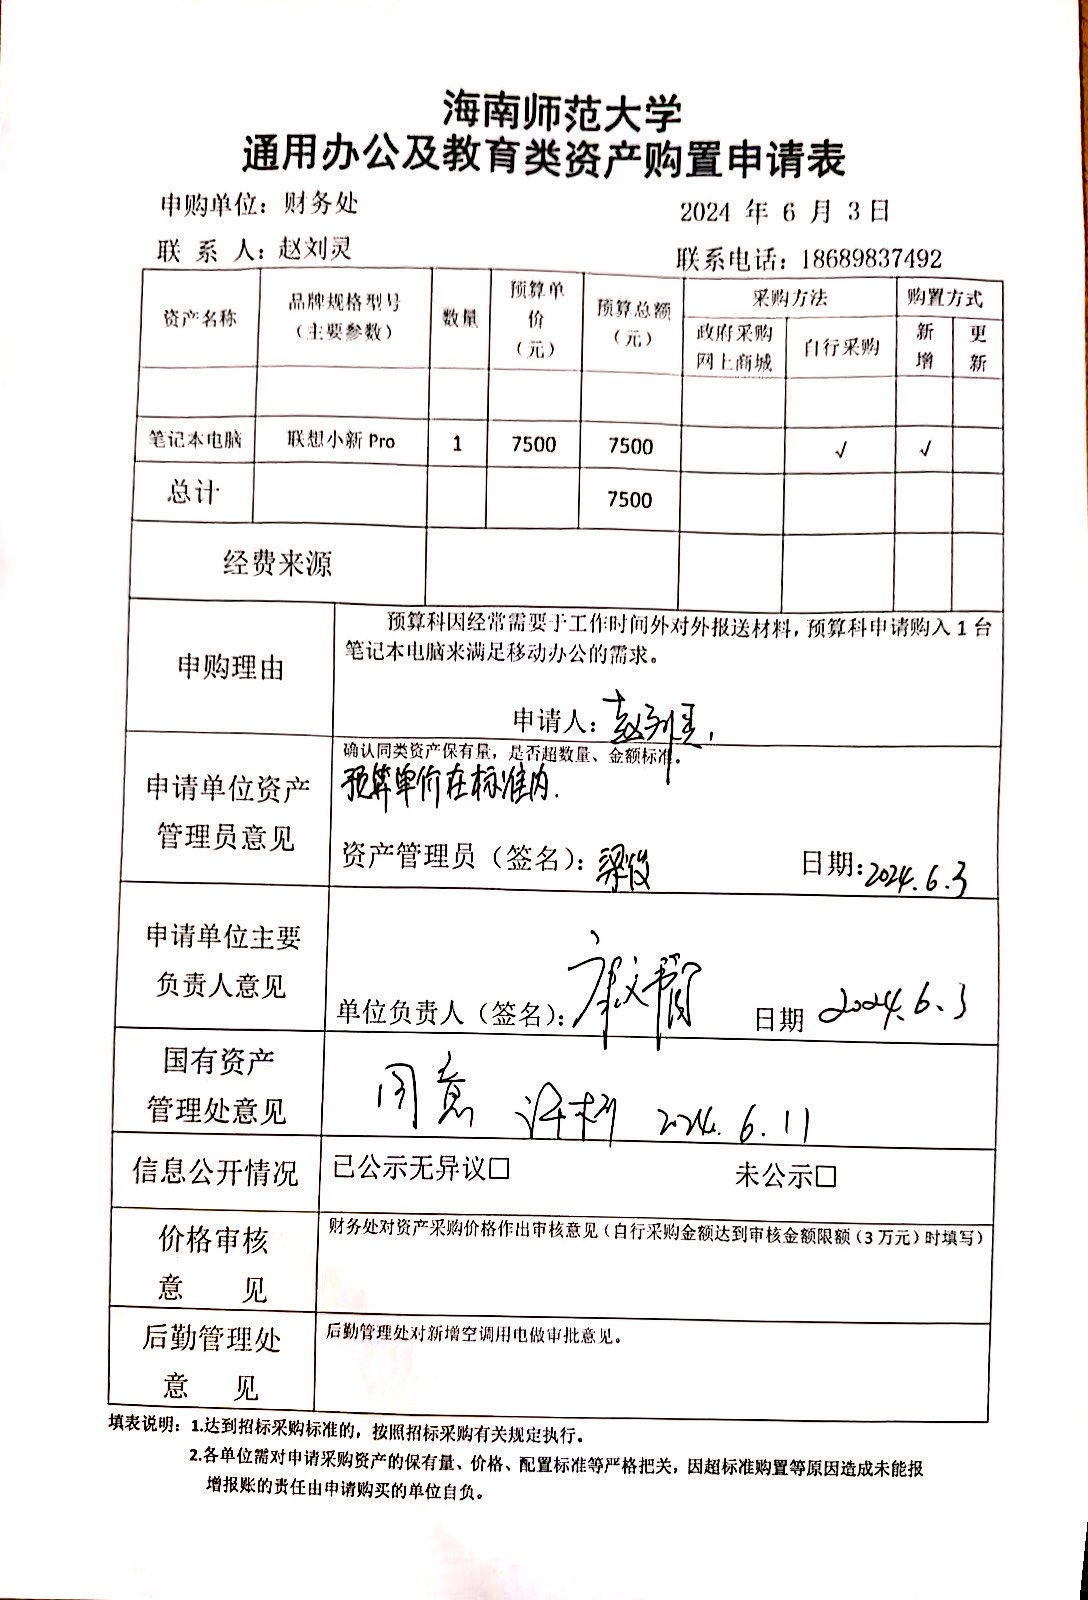 海南师范大学
通用办公及教育类资产购置申请表
申购单位：财务处
2024 年 6 月 3日
联 系 人：赵刘灵
联系电话：18689837492
资产名称 品牌规格型号（主要参数） 数量 预算单价（元） 预算总额（元） 采购方法 购置方式
政府采购网上商城 自行采购 新增 更新
笔记本电脑 联想小新 Pro 1 7500 7500 √ √
总计 7500
经费来源
申购理由
预算科因经常需要于工作时间外对外报送材料，预算科申请购入 1 台
笔记本电脑来满足移动办公的需求。
申请人：赵刘灵
申请单位资产
管理员意见
确认同类资产保有量，是否超数量、金额标准。
预算单价在标准内.
资产管理员（签名）：梁俊
日期：2024.6.3
申请单位主要
负责人意见
单位负责人（签名）：
日期 2024.6.3
国有资产
管理处意见
同意 2024.6.11
信息公开情况
已公示无异议□ 未公示□
价格审核
意 见
财务处对资产采购价格作出审核意见（自行采购金额达到审核金额限额（3 万元）时填写）
后勤管理处
意 见
后勤管理处对新增空调用电做审批意见。
填表说明：1.达到招标采购标准的，按照招标采购有关规定执行。
2.各单位需对申请采购资产的保有量、价格、配置标准等严格把关，因超标准购置等原因造成未能报
增报账的责任由申请购买的单位自负。